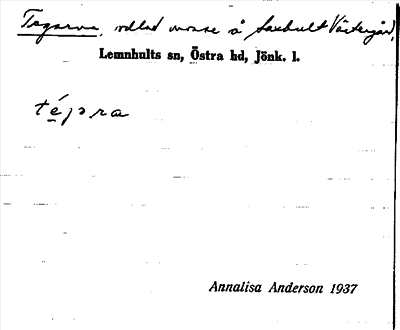 Tegarna, odlad mosse å Saxhult Västergård,
Lemnhults sn, Östra hd, Jönk. l.
té̱jɘra
Annalisa Anderson 1937